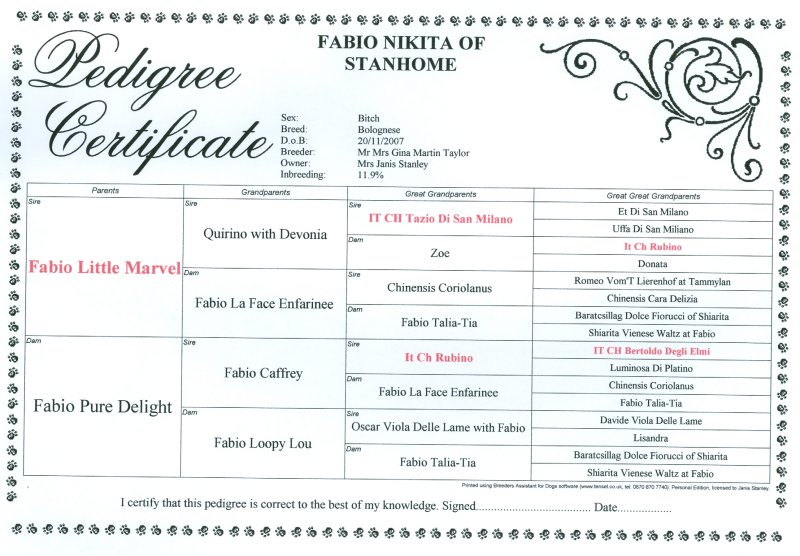 Pedigree
Certificate
FABIO NIKITA OF
STANHOME
Sex: Bitch
Breed: Bolognese
D.o.B: 20/11/2007
Breeder: Mr Mrs Gina Martin Taylor
Owner: Mrs Janis Stanley
Inbreeding: 11.9%
Parents Grandparents Great Grandparents Great Great Grandparents
Sire
Fabio Little Marvel
Dam
Fabio Pure Delight
Sire
Quirino with Devonia
Dam
Fabio La Face Enfarinee
Sire
Fabio Caffrey
Dam
Fabio Loopy Lou
Sire
IT CH Tazio Di San Milano
Dam
Zoe
Sire
Chinensis Coriolanus
Dam
Fabio Talia-Tia
Sire
It Ch Rubino
Dam
Fabio La Face Enfarinee
Sire
Oscar Viola Delle Lame with Fabio
Dam
Fabio Talia-Tia
Et Di San Milano
Uffa Di San Miliano
It Ch Rubino
Donata
Romeo Vom'T Lierenhof at Tammylan
Chinensis Cara Delizia
Baratcsillag Dolce Fiorucci of Shiarita
Shiarita Vienese Waltz at Fabio
IT CH Bertoldo Degli Elmi
Luminosa Di Platino
Chinensis Coriolanus
Fabio Talia-Tia
Davide Viola Delle Lame
Lisandra
Baratcsillag Dolce Fiorucci of Shiarita
Shiarita Vienese Waltz at Fabio
Printed using Breeders Assistant for Dogs software (www.tenset.co.uk, tel: 0870 870 7740). Personal Edition, licensed to Janis Stanley.
I certify that this pedigree is correct to the best of my knowledge. Signed.................................. Date...............